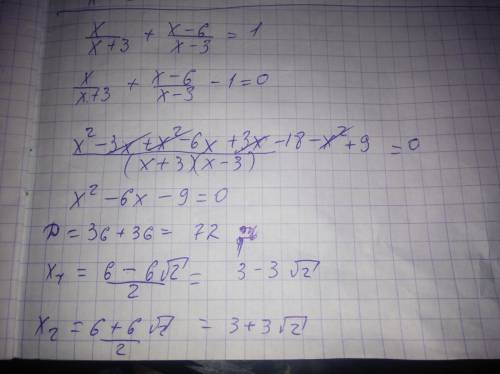 x/(x+3) + (x-6)/(x-3) = 1
x/(x+3) + (x-6)/(x-3) - 1 = 0
(x² - 3x + x² - 6x + 3x - 18 - x² + 9)/((x+3)(x-3)) = 0
x² - 6x - 9 = 0
D = 36 + 36 = 72
x₁ = (6 - 6√2)/2 = 3 - 3√2
x₂ = (6 + 6√2)/2 = 3 + 3√2